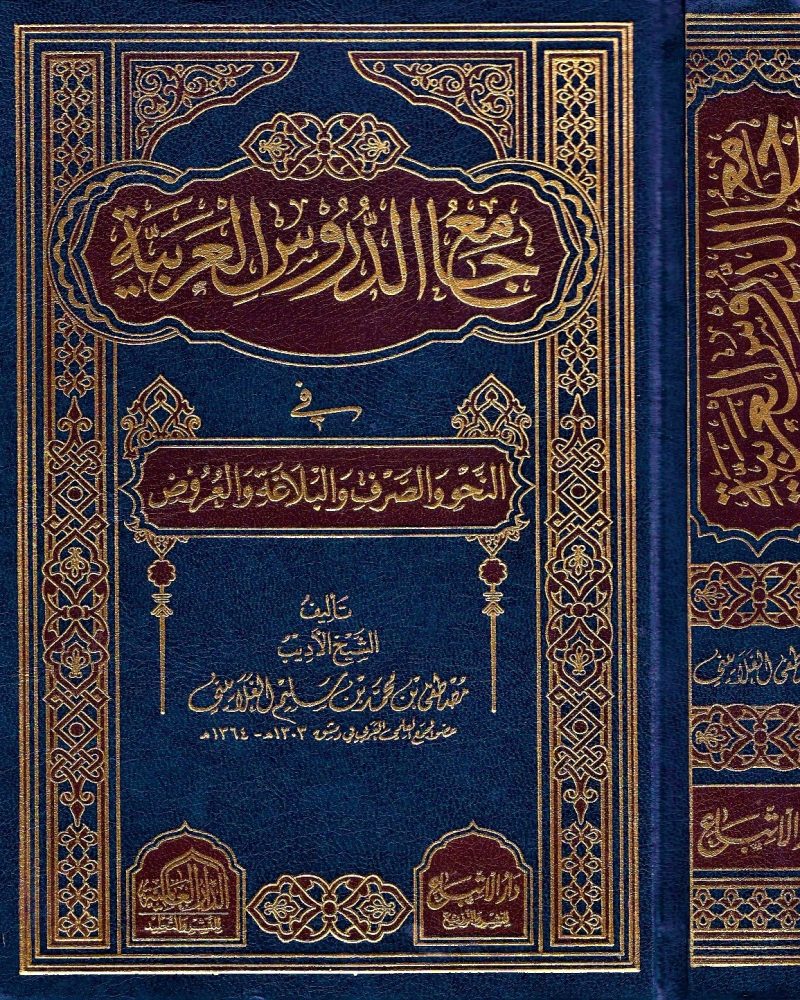 جَامِع الدُّرُوسِ العَرَبِيَّةِ
في
النَّحْوِ وَالصَّرْفِ وَالْبَلَاغَةِ وَالْعُرُوضِ
تَأْلِيفُ
الشَّيْخِ الأَدِيبِ
مُصْطَفَى بْنِ مُحَمَّد بْنِ سَلِيم الغَلَايِينِي
عضو المجمع العلمي العربي في دمشق ١٣٠٣هـ - ١٣٦٤هـ
دَارُ الِاتِّبَاعِ
للنشر والتوزيع
الدَّارُ العَالَمِيَّة
للنشر والتجليد
جَامِع الدُّرُوسِ العَرَبِيَّةِ
الغلاييني
الِاتِّبَاعِ